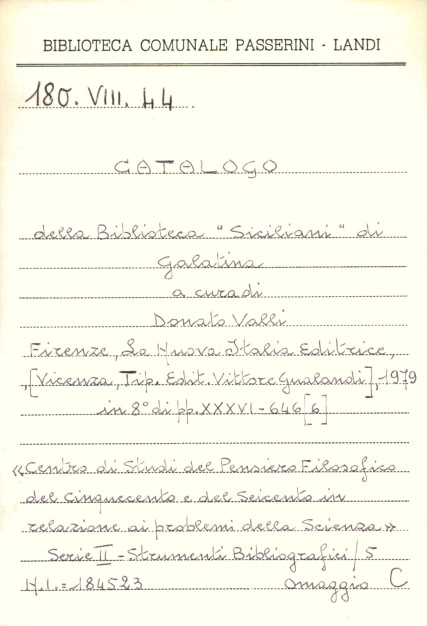 BIBLIOTECA COMUNALE PASSERINI - LANDI
180. VIII. 44
CATALOGO
della Biblioteca "Siciliani" di
Galatina
a cura di
Donato Valli
Firenze, La Nuova Italia Editrice,
[Vicenza, Tip. Edit. Vittore Gualandi], 1979
in 8° di pp. XXXVI-646[6]
«Centro di Studi del Pensiero Filosofico
del Cinquecento e del Seicento in
relazione ai problemi della Scienza»
Serie II - Strumenti Bibliografici / 5
N.I.=184523 omaggio C